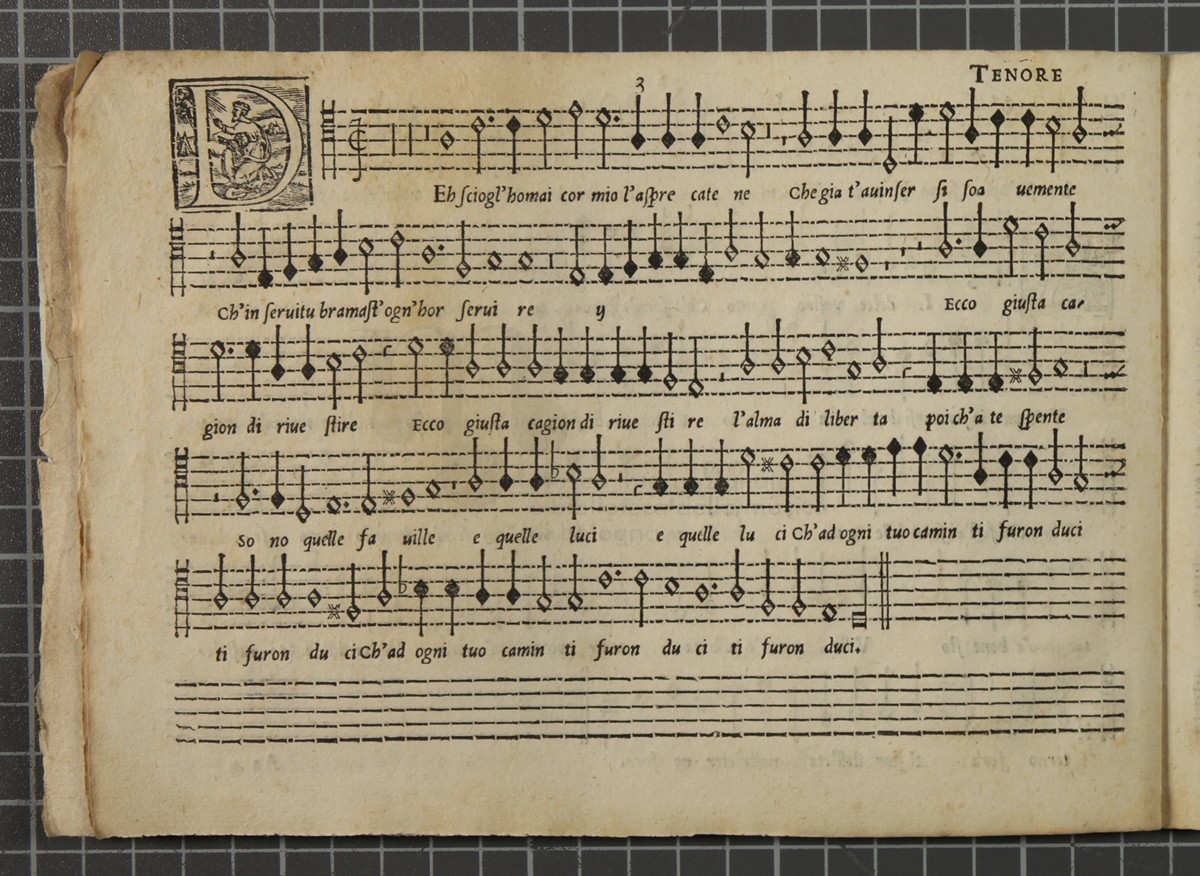 TENORE
3
D
Eh ſciogl'homai cor mio l'aſpre cate ne Che gia t'auinſer ſi ſoa uemente
Ch'in ſeruitu bramaſt'ogn'hor ſerui re ij Ecco giuſta ca-
gion di riue ſtire Ecco giuſta cagion di riue ſti re l'alma di liber ta poi ch'a te ſpente
So no quelle fa uille e quelle luci e quelle lu ci Ch'ad ogni tuo camin ti furon duci
ti furon du ci Ch'ad ogni tuo camin ti furon du ci ti furon duci.